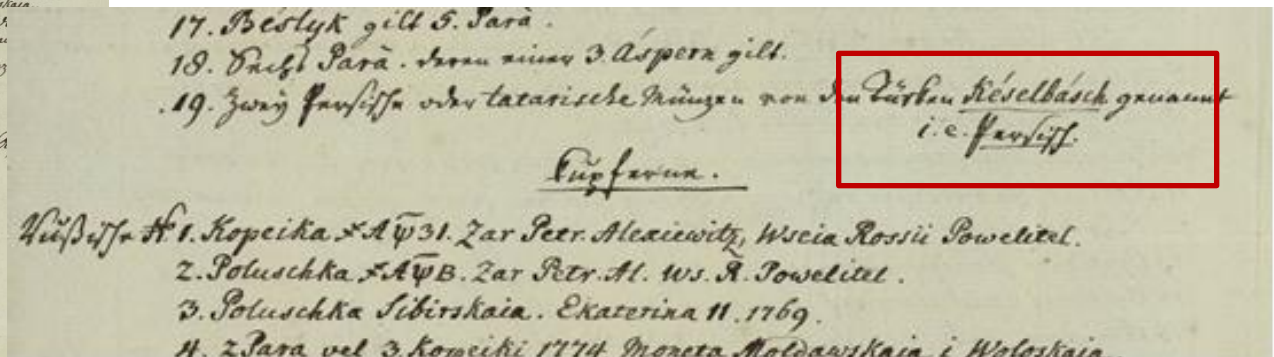 17. Beslyk gilt 5. Parà.
18. Sechs Parà. deren einer 3. Aspern gilt.
19. Zwey Persische oder tatarische Münzen von den Türken Késelbásch genannt
i. e. Persisch.
Kupferne.
Rußische N 1. Kopeika ҂АѰ31. Zar Petr. Alexiewitz, Wseia Rossii Powelitel.
2. Poluschka ҂АѰB. Zar Petr. Al. Ws. R. Powelitel.
3. Poluschka Sibirskaia. Ekaterina II. 1769.
4. 2 Para vel 3. Kopeiki 1774 Moneta Moldawskaia i Woloskaia